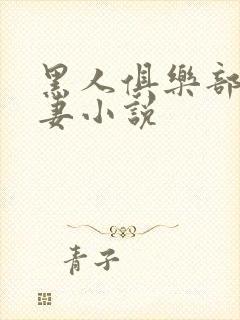 黑人俱樂部
妻小說
青子